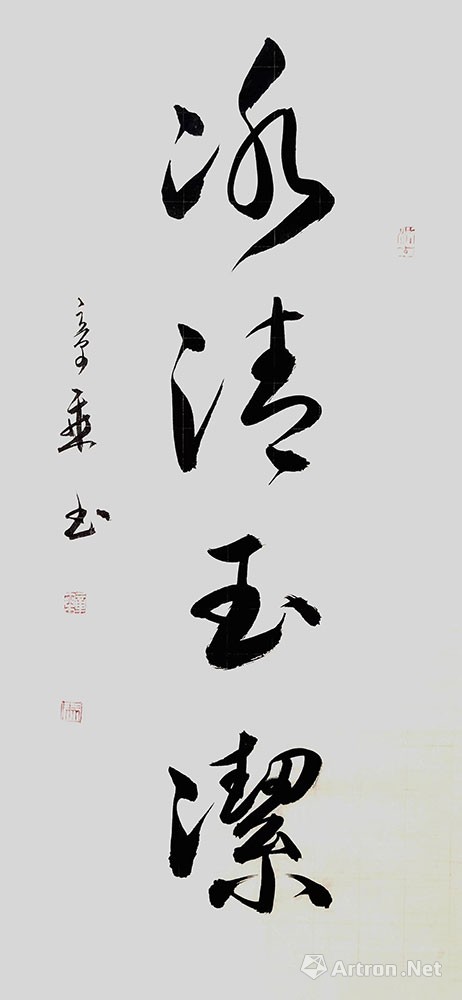 冰清玉潔
章乘书
Artron.Net